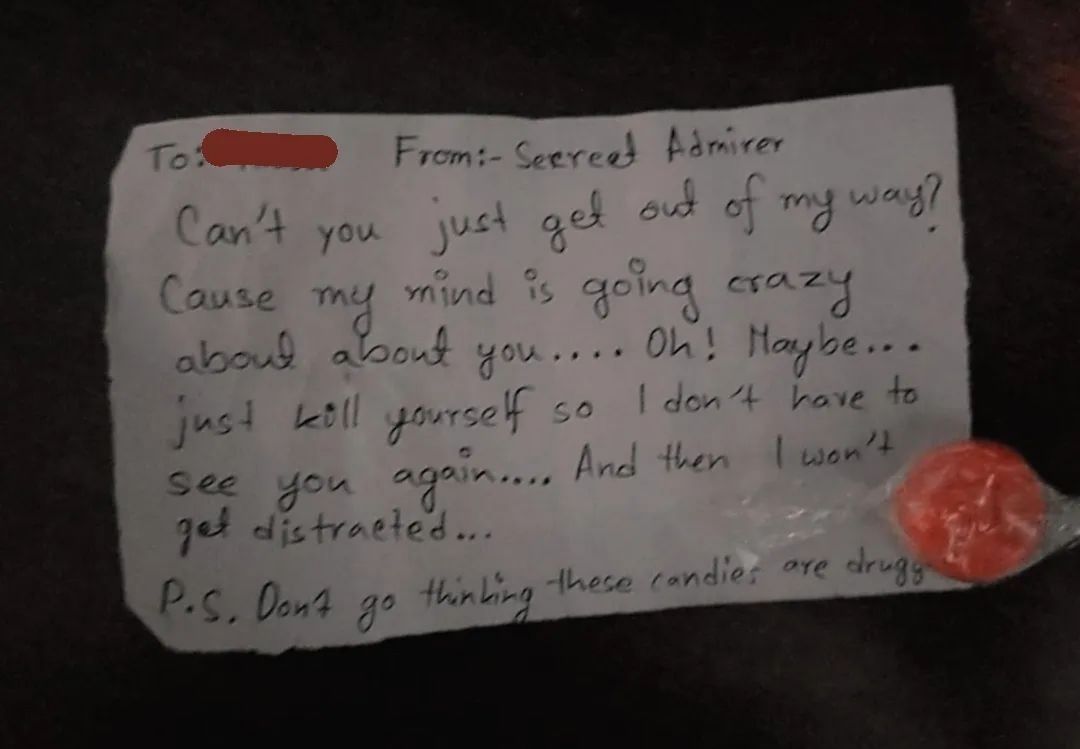 To: From:- Secreet Admirer
Can't you just get out of my way?
Cause my mind is going crazy
about about you.... Oh! Maybe...
just kill yourself so I don't have to
see you again.... And then I won't
get distracted...
P.S. Dont go thinking these candies are drugg